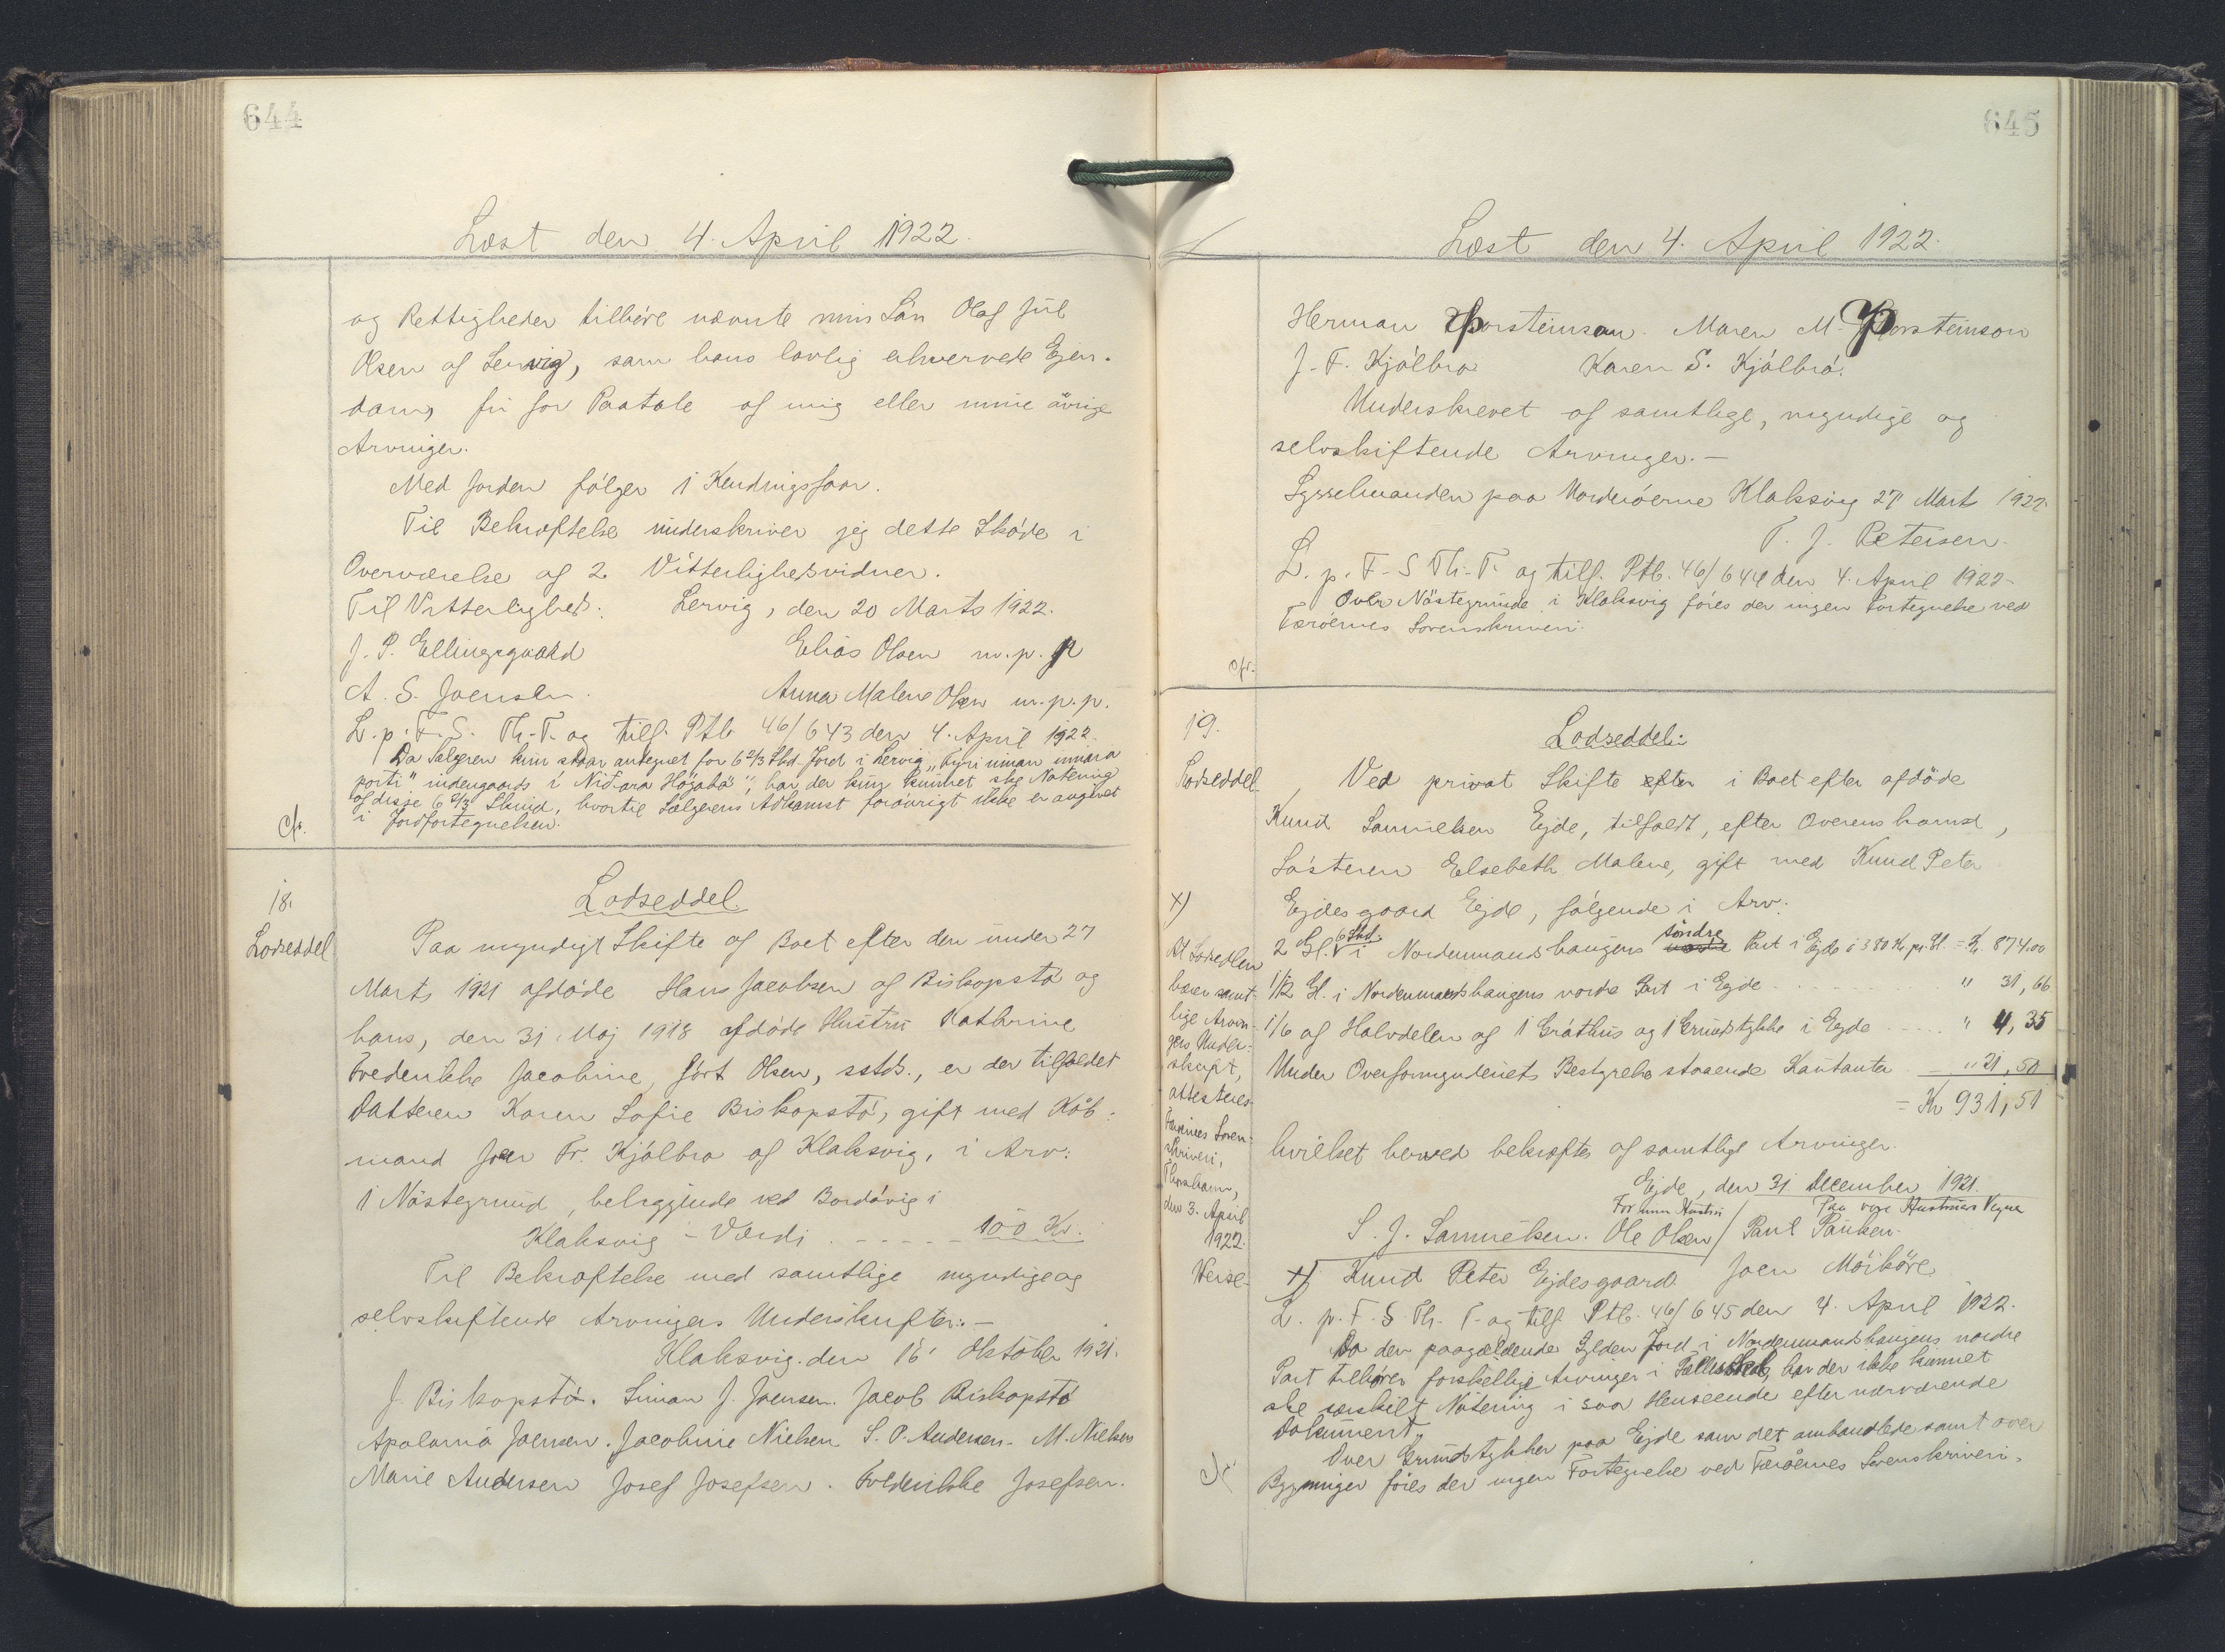 644
Læst den 4. April 1922.
og Rettigheder tilhøre nævnte min Søn Olaf Juul
Olsen af Lervig, som hans lovlig erhvervede Ejen-
dom, fri for Paatale af mig eller mine øvrige
Arvinger.
Med Jorden følger 1 Kendingsfaar.
Til Bekræftelse underskriver jeg dette Skøde i
Overværelse af 2 Vitterlighedsvidner.
Til Vitterlighed: Lervig, den 20 Marts 1922.
J. P. Ellingsgaard Elias Olsen m. p. p
A. S. Joensen. Anna Malene Olsen m. p. p.
L. p. F. S. Th. T. og tilf. Ptb 46/643 den 4. April 1922.
Da Sælgeren kun staar antegnet for 6 2/3 Skd. Jord i Lervig "Fyri uman
porti" indengaards i Niðara Høgabø", har der kun kunnet ske Notering
af disse 6 2/3 Skind, hvortil Sælgerens Adkomst forøvrigt ikke er angivet
i Jordfortegnelsen.
cfr.
18.
Lodseddel
Lodseddel.
Paa myndigt Skifte af Boet efter den under 27
Marts 1921 afdøde Hans Jacobsen af Biskopstø og
hans, den 31 Maj 1918 afdøde Hustru Kathrine
Fredrikke Jacobine, født Olsen, sstds., er der tilfaldet
Datteren Karen Sofie Biskopstø, gift med Køb-
mand Joen Fr. Kjølbro af Klaksvig, i Arv:
1 Nøstegrund, beliggende ved Bordøvig i
Klaksvig - Værdi - - - - - 100 Kr.
Til Bekræftelse med samtlige myndige og
selvskiftende Arvingers Underskrifter. -
Klaksvig, den 16' Oktober 1921.
J. Biskopstø. Simon J. Joensen. Jacob Biskopstø
Apolonia Joensen. Jacobine Nielsen S. P. Andersen. M. Nielsen
Marie Andersen Josef Josefsen. Fredrikke Josefsen.
645
Læst den 4. April 1922.
Herman Thorsteinson. Maren M. Thorsteinson
J. F. Kjølbro Karen S. Kjølbro.
Underskrevet af samtlige, myndige og
selvskiftende Arvinger. -
Sysselmanden paa Norderøerne Klaksvig 27' Marts 1922.
T. J. Petersen.
L. p. F. S Th. T. og tilf. Ptb. 46/644 den 4. April 1922.
Over Nøstegrunde i Klaksvig føres der ingen Fortegnelse ved
Færøernes Sorenskriveri.
cfr.
19.
Lodseddel
Lodseddel:
Ved privat Skifte efter i Boet efter afdøde
Knud Samuelsen Ejde, tilfaldt, efter Overenskomst,
Søsteren Elsebeth Malene, gift med Knud Peter
Ejdesgaard Ejde, følgende i Arv:
2 Gl. 6 Skd. i Nordenmandshaugens nordre søndre Part i Ejde á 380 Kr. pr. Gl. = Kr. 874.00
1/12 Gl. i Nordenmandshaugens nordre Part i Ejde " 31,66
1/6 af Halvdelen af 1 Gráthus og 1 Grundstykke i Ejde " 4,35
Under Overformynderiets Bestyrelse staaende Kontanter " 21,50
= Kr 931,51
hvilket herved bekræftes af samtlige Arvinger.
Ejde, den 31 December 1921.
For min Hustru Paa vore Hustruers Vegne
S. J. Samuelsen. Ole Olsen / Paul Paulsen.
x) Knud Peter Ejdesgaard. Joen Mörköre
L. p. F. S. Th. T. og tilf. Ptb. 46/645 den 4. April 1922.
Da den paagældende Gylden Jord i Nordenmandshaugens nordre
Part tilhører forskellige Arvinger i Fællesskab, har der ikke kunnet
ske særskilt Notering i saa Henseende efter nærværende
Dokument.
Over Grundstykker paa Ejde som det omhandlede samt over
Bygninger føres der ingen Fortegnelse ved Færøernes Sorenskriveri.
cfr.
x)
At Lodsedlen
bærer samt-
lige Arvin-
gers Under-
skrift,
attesteres
Færøernes Soren-
skriveri,
Thorshavn,
den 3. April
1922.